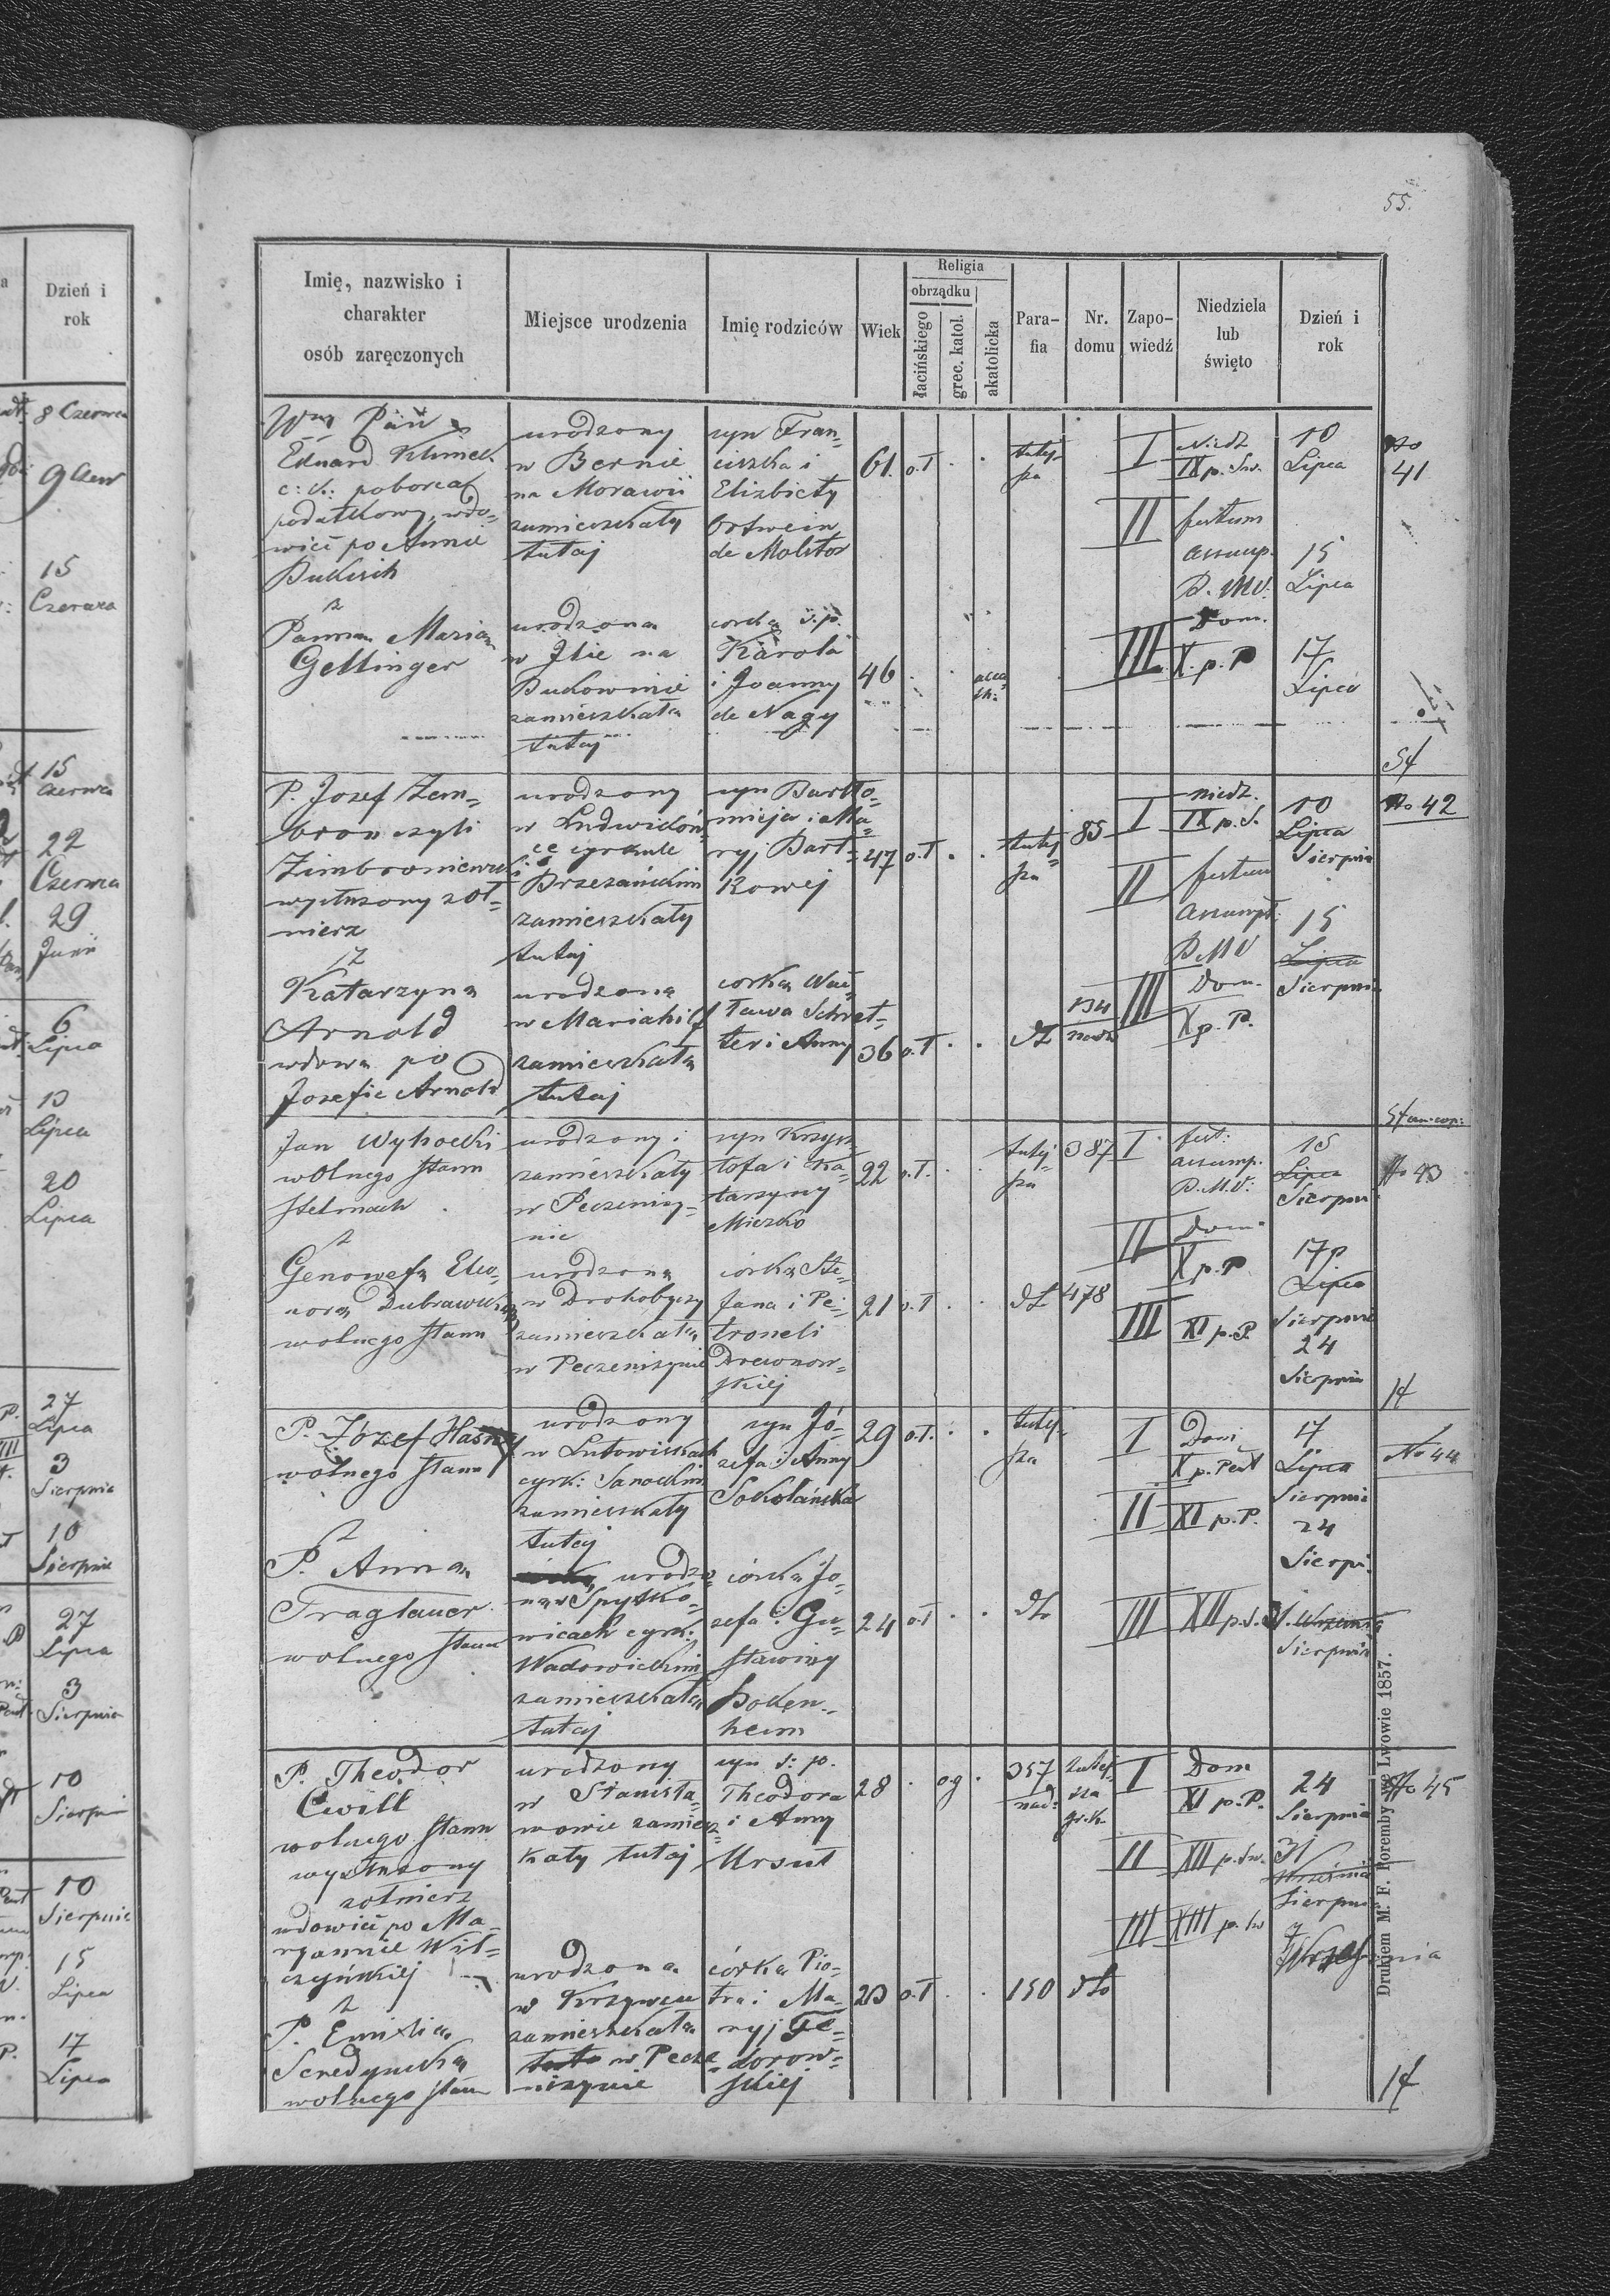 55.
Imię, nazwisko i
charakter
osób zaręczonych
Miejsce urodzenia
Imię rodziców
Wiek
Religia
obrządku
łacińskiego
grec. katol.
akatolicka
Para-
fia
Nr.
domu
Zapo-
wiedź
Niedziela
lub
święto
Dzień i
rok
Pan
Eduard Klimek
c: k: poborca
podatkowy, wdo-
wiec po Annie
z
Panna Maria
Gettinger
urodzony
w Bernie
na Morawii
zamieszkały
tutaj
urodzona
w na
Bukowinie
zamieszkała
tutaj
syn Fran-
ciszka i
Elizbiety
Ortwein
de Molitor
corka ś.p.
Karola
i Joanny
de Nagy
61.
46
o.ł
tutej-
sza
I
II
III
Niedz
IX p. Św.
festum
assump.
B. M.V.
Dom.
X. p. P
10
Lipca
15
Lipca
17
Lipca
No
41
P. Jozef Zem-
bron czyli
wysłużony żoł-
nierz
z
Katarzyna
Arnold
wdowa po
Jozefie Arnold
urodzony
w Ludwikow-
ce cyrkule
Brzezańskim
zamieszkały
tutaj
urodzona
w Mariahilf
zamieszkała
tutaj
syn Bartło-
mieja i Ma-
ryj Bart-
kowej
corka Wac-
ława Schret-
ter i Anny
47
36
o.ł
o.ł
tutej
sza
85
134
I
II
III
niedz.
IX p. S.
festum
assumpt.
B.M.V
Dom.
X p. P.
10
Lipca
Sierpnia
15
Lipca
Sierpnia
No 42
Jan Wysocki
wolnego stanu
stelmach
z
Genowefa Eleo-
nora
wolnego stanu
urodzony i
zamieszkały
w Peczeniży-
nie
urodzona
w Drohobyczy
zamieszkała
w Peczeniżynie
syn Krzysz
tofa i Ka-
tarzyny
Miezko
corka Ste-
fana i Pe-
troneli
Drewnow-
skiej
22
21
o.ł.
o.ł
tutej-
sza
387
478
I
II
III
fest:
assump.
B.M.V:
Dom.
X p. P
XI p. P.
15
Lipca
Sierpnia
17
Lipca
Sierpnia
24
Sierpnia
No 43
P. Józef
wolnego stanu
z
P. Anna
Traglauer
wolnego stanu
urodzony
w Lutowiskach
cyrk: Sanockim
zamieszkały
tutej
urodzo
na w Spytko-
wicach cyrk:
Wadowickim
zamieszkała
tutaj
syn Jó-
zefa i Anny
Sokolańska
córka Jo-
zefa i Gu-
stawiny
Boken-
heim
29
24
o.ł.
o.ł
tutej-
sza
I
II
III
Dom
X p. Pent
XI p. P.
XII p. S.
17
Lipca
Sierpnia
24
Sierpn
31. Września
Sierpnia
No 44
P. Theodor
Cwill
wolnego stanu
wysłużony
żołnierz
wdowiec po Ma-
ryannie Wil-
czyńskiej
z
P. Emilia
wolnego stanu
urodzony
w Stanisła-
wowie zamiesz-
kały tutaj
urodzona
w Krzywcu
zamieszkała
w Pecze-
niżynie
syn ś: p.
Theodora
i Anny
Ursut
córka Pio-
tra i Ma-
ryj Te-
dorow-
skiej
28
23
og
o.ł
357
150
tutej-
sza
gr. k.
I
II
III
Dom
XI p. P.
XII p. Św.
XIII p. Św
24
Sierpnia
31
Września
Sierpnia
7
Września
No 45
Drukiem M. F. Poremby we Lwowie 1857.
Dzień i
rok
8 Czerwca
9 Czerw
15
Czerwca
15
Czerwca
22
Czerwca
29
Juni
6
Lipca
13
Lipca
20
Lipca
27
Lipca
3
Sierpnia
10
Sierpnia
27
Lipca
3
Sierpnia
10
Sierpnia
10
Sierpnia
15
Lipca
17
Lipca